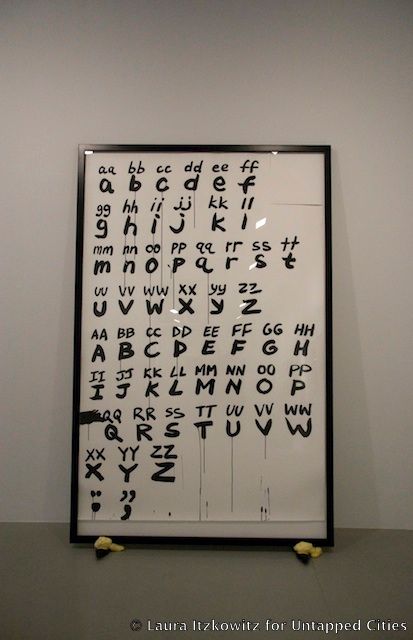 aa bb cc dd ee ff
a b c d e f
gg hh ii jj kk ll
g h i j k l
mm nn oo pp qq rr ss tt
m n o p q r s t
uu vv ww xx yy zz
u v w x y z
AA BB CC DD EE FF GG HH
A B C D E F G H
II JJ KK LL MM NN OO PP
I J K L M N O P
QQ RR SS TT UU VV WW
Q R S T U V W
XX YY ZZ
X Y Z
© Laura Itzkowitz for Untapped Cities